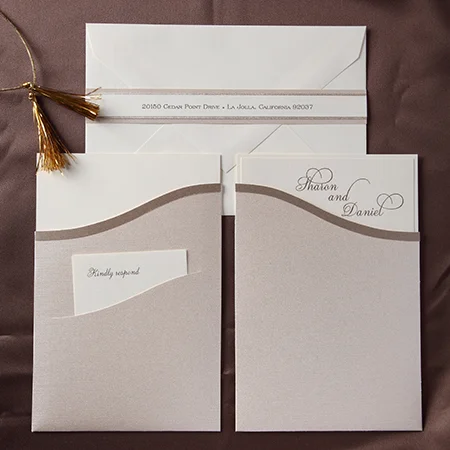 20150 Cedar Point Drive • La Jolla, California 92037
Sharon
and
Daniel
Kindly respond